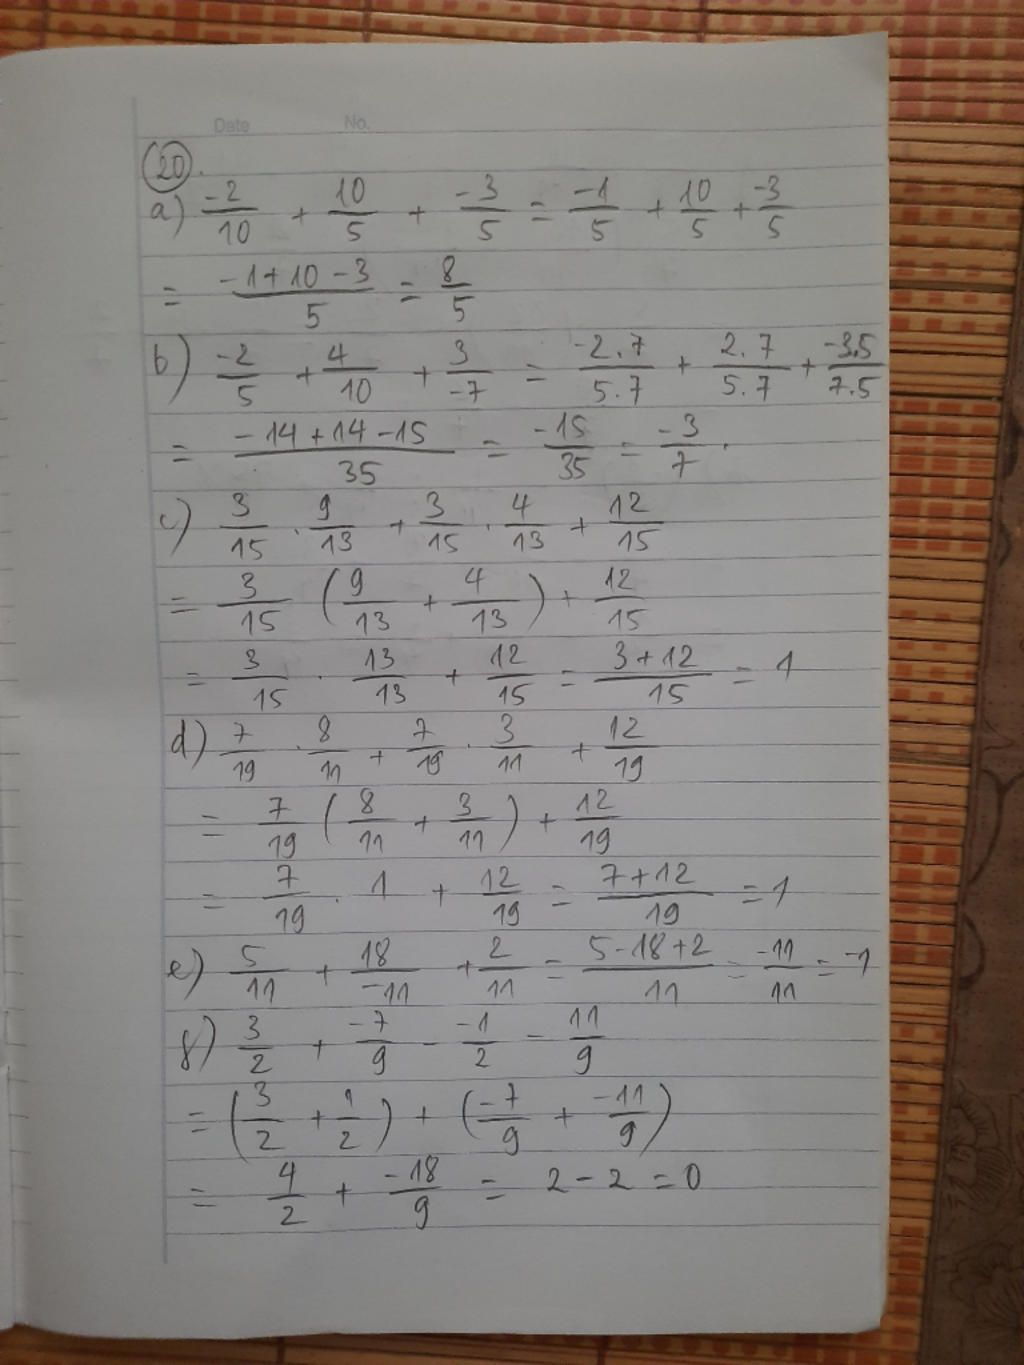 Date No.
20.
a) -2/10 + 10/5 + -3/5 = -1/5 + 10/5 + -3/5
= -1+10-3/5 = 8/5
b) -2/5 + 4/10 + 3/-7 = -2.7/5.7 + 2.7/5.7 + -3.5/7.5
= -14+14-15/35 = -15/35 = -3/7 .
c) 3/15 . 9/13 + 3/15 . 4/13 + 12/15
= 3/15 (9/13 + 4/13) + 12/15
= 3/15 . 13/13 + 12/15 = 3+12/15 = 1
d) 7/19 . 8/11 + 7/19 . 3/11 + 12/19
= 7/19 (8/11 + 3/11) + 12/19
= 7/19 . 1 + 12/19 = 7+12/19 = 1
e) 5/11 + 18/-11 + 2/11 = 5-18+2/11 = -11/11 = -1
g) 3/2 + -7/9 - -1/2 - 11/9
= (3/2 + 1/2) + (-7/9 + -11/9)
= 4/2 + -18/9 = 2 - 2 = 0